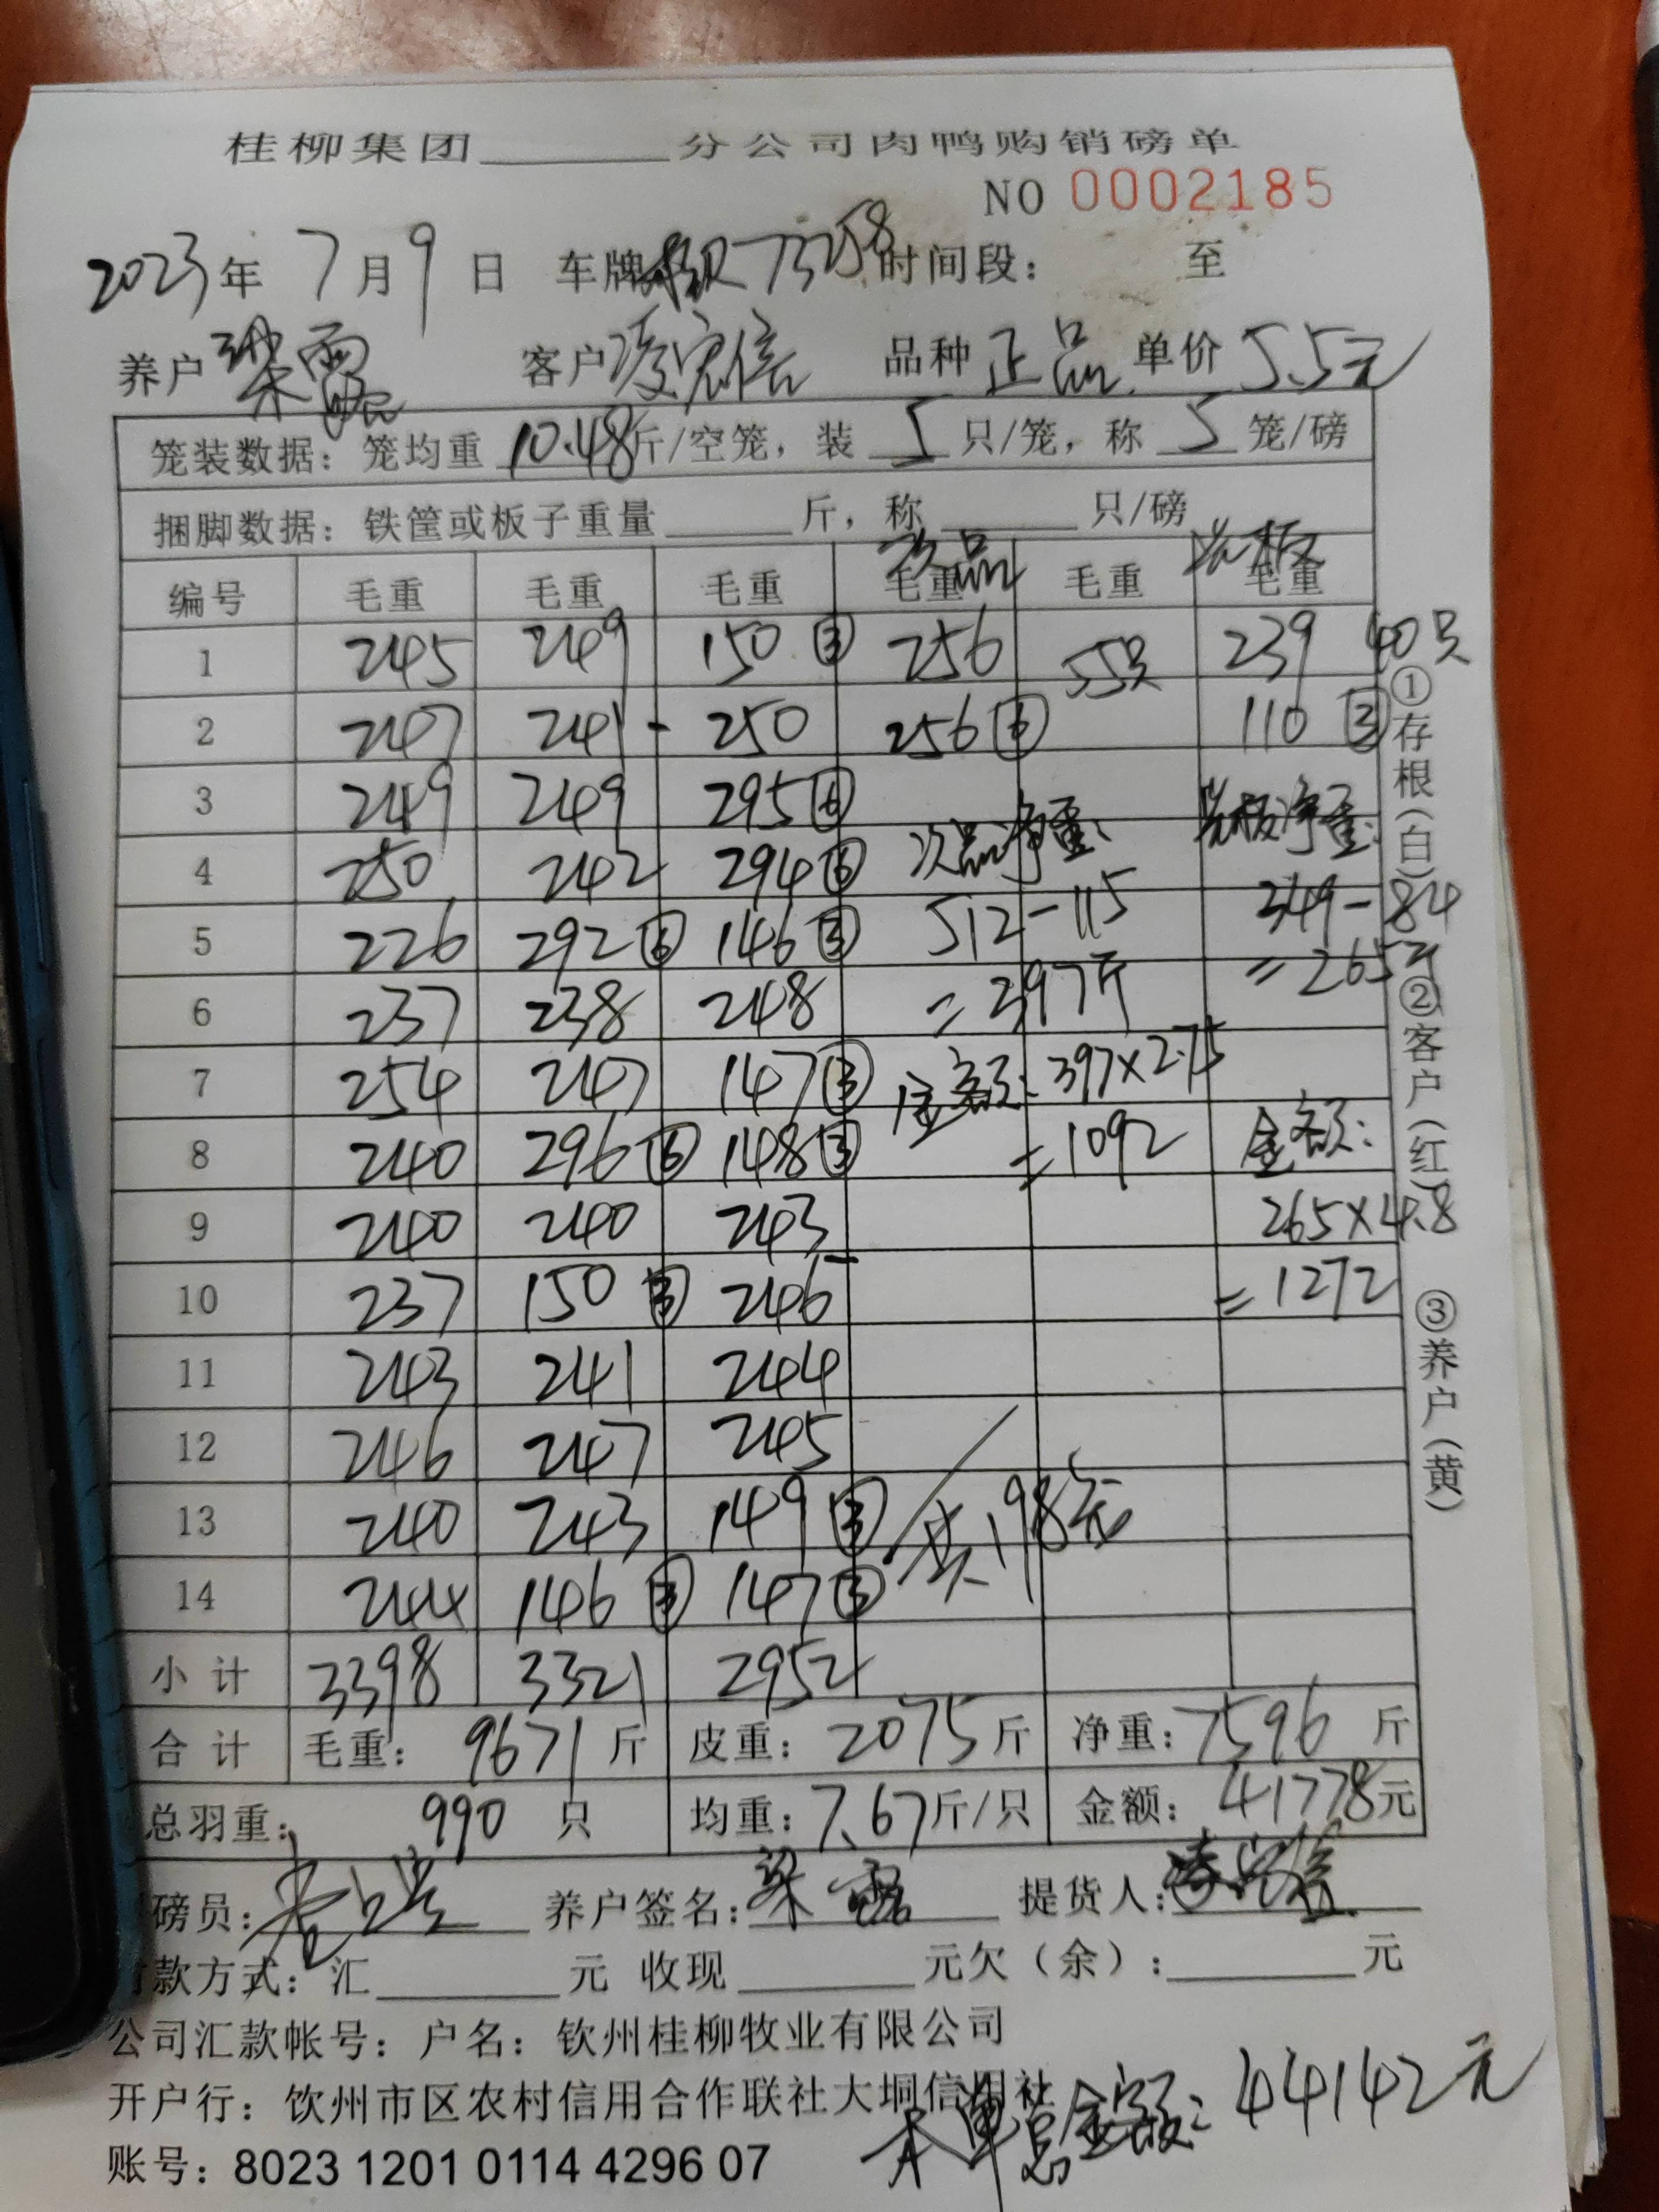 桂柳集团______分公司肉鸭购销磅单
NO 0002185
2023年 7月 9日 车牌 73258 时间段: 至
养户 梁露 客户 凌宏信 品种 正品 单价 5.5元
笼装数据:笼均重 10.48斤/空笼,装 5 只/笼,称 5 笼/磅
捆脚数据:铁筐或板子重量______斤,称______只/磅
次品 光板
编号 毛重 毛重 毛重 毛重 毛重 毛重
1 245 249 150 ③ 256 55只 239 40只
2 247 241 - 250 256 ⑥ 110 ③
3 249 249 295 ⑥
4 250 242 294 ⑥ 次品净重: 光板净重:
5 226 292 ⑥ 146 ③ 512-115 349-84
6 237 238 248 =397斤 =265斤
7 254 247 147 ③ 金额:397×2.75
8 240 296 ⑥ 148 ③ =1092 金额:
9 240 240 243 265×4.8
10 237 150 ③ 246 =1272
11 243 241 244
12 246 247 245
13 240 243 149 ③ 共198
14 244 146 ③ 147 ③
小计 3398 3321 2952
合计 毛重: 9671 斤 皮重: 2075 斤 净重: 7596 斤
总羽重: 990 只 均重: 7.67斤/只 金额: 41778元
磅员: 养户签名: 梁露 提货人:
款方式:汇______元 收现______元欠(余):______元
公司汇款帐号:户名:钦州桂柳牧业有限公司
开户行:钦州市区农村信用合作联社大垌信用社
本单总金额:44142元
账号:8023 1201 0114 4296 07
①存根(白) ②客户(红) ③养户(黄)